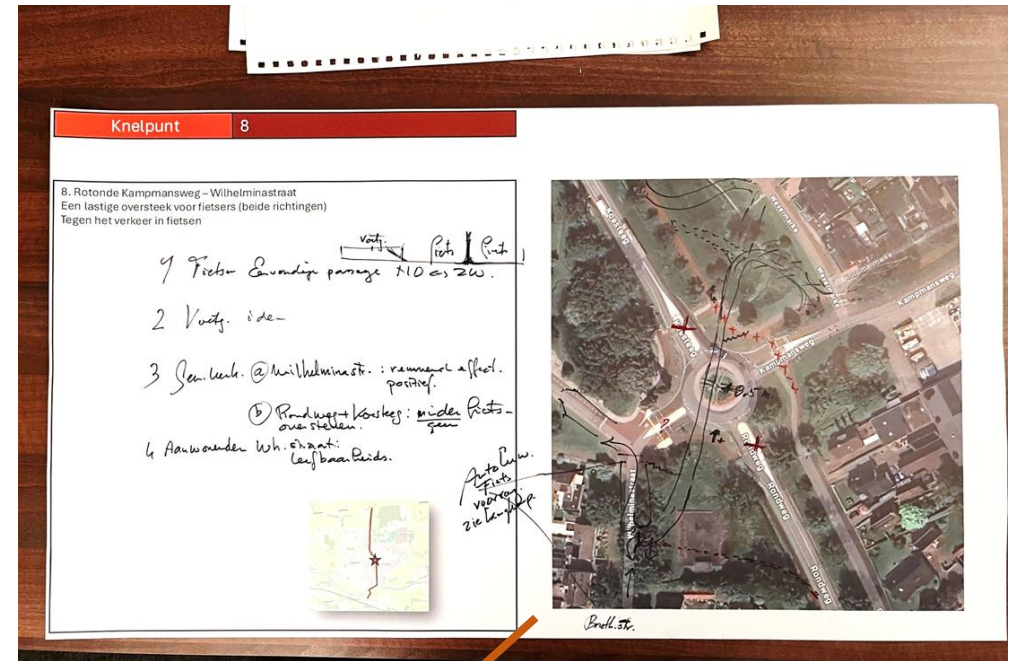 Knelpunt 8
8. Rotonde Kampmansweg – Wilhelminastraat
Een lastige oversteek voor fietsers (beide richtingen)
Tegen het verkeer in fietsen
Voetg. Fiets Fiets
1 Fietser Eenvoudige passage
2 Voetg. idem
3 @ Wilhelminastr. : remmend effect.
positief.
(b) Rondweg + Koesteeg: minder fiets-
oversteken. geen
4 Aanwonenden Wh. straat:
leefbaarheids.
Autoluw.
Fiets
voorrang.
zie
Koesteeg
Wezermarke
Wezermarke
Kampmansweg
Koesteeg
Kampmansweg
Rondweg
Rondweg
Rondweg
Wilhelminastraat